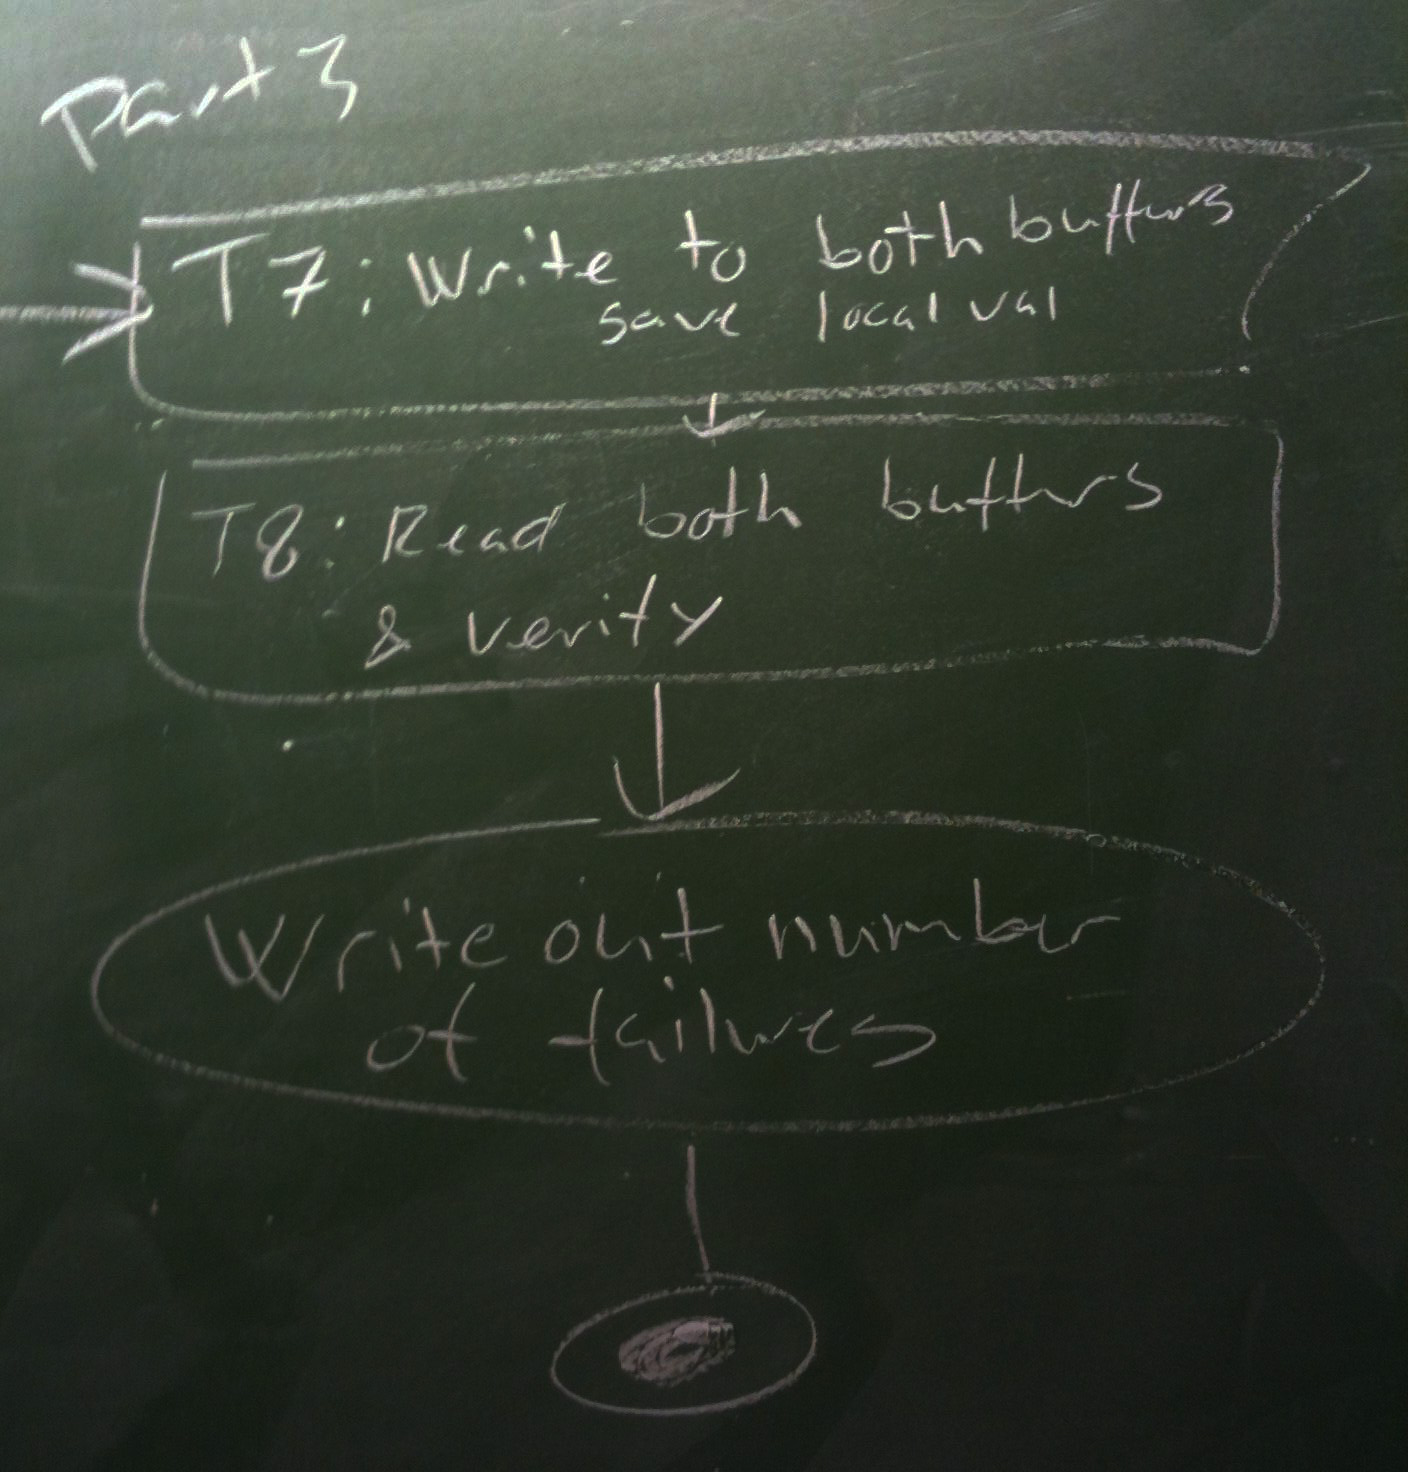 Part 3
T7: Write to both buffers
save local val
T8: Read both buffers
& verify
Write out number
of failures